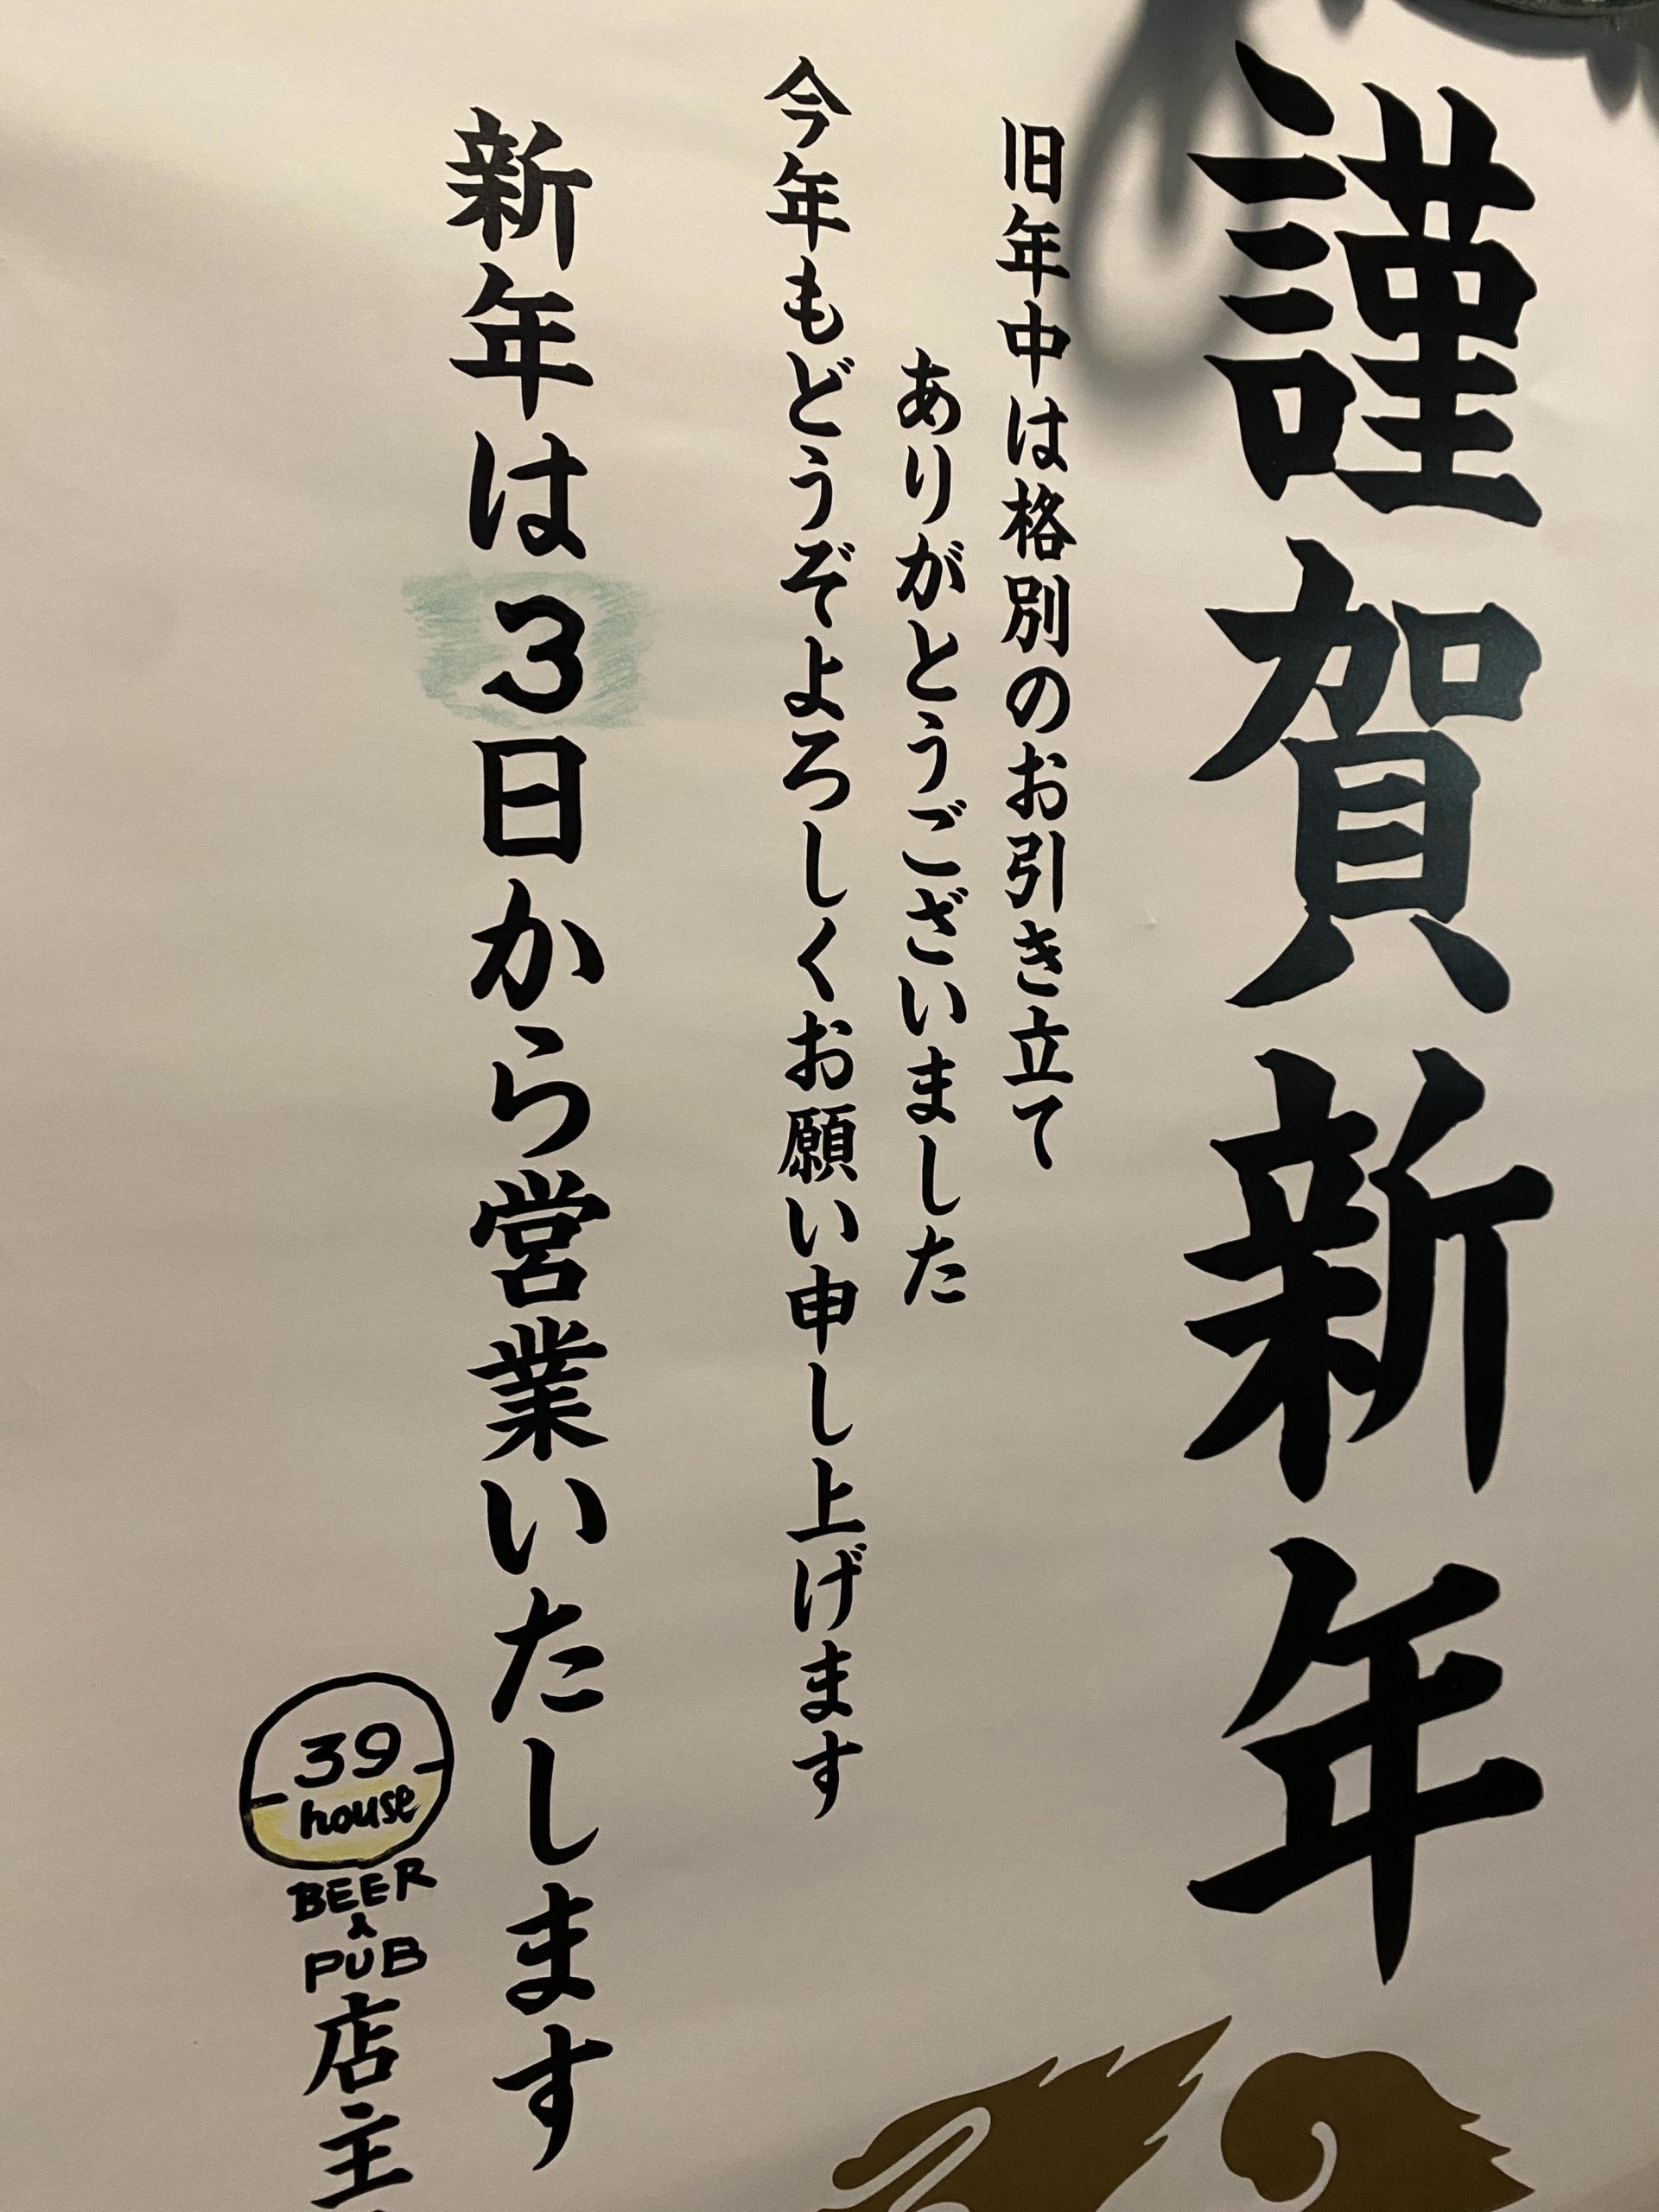 謹賀新年
旧年中は格別のお引き立て
ありがとうございました
今年もどうぞよろしくお願い申し上げます
新年は3日から営業いたします
39
house
BEER
&
PUB
店主